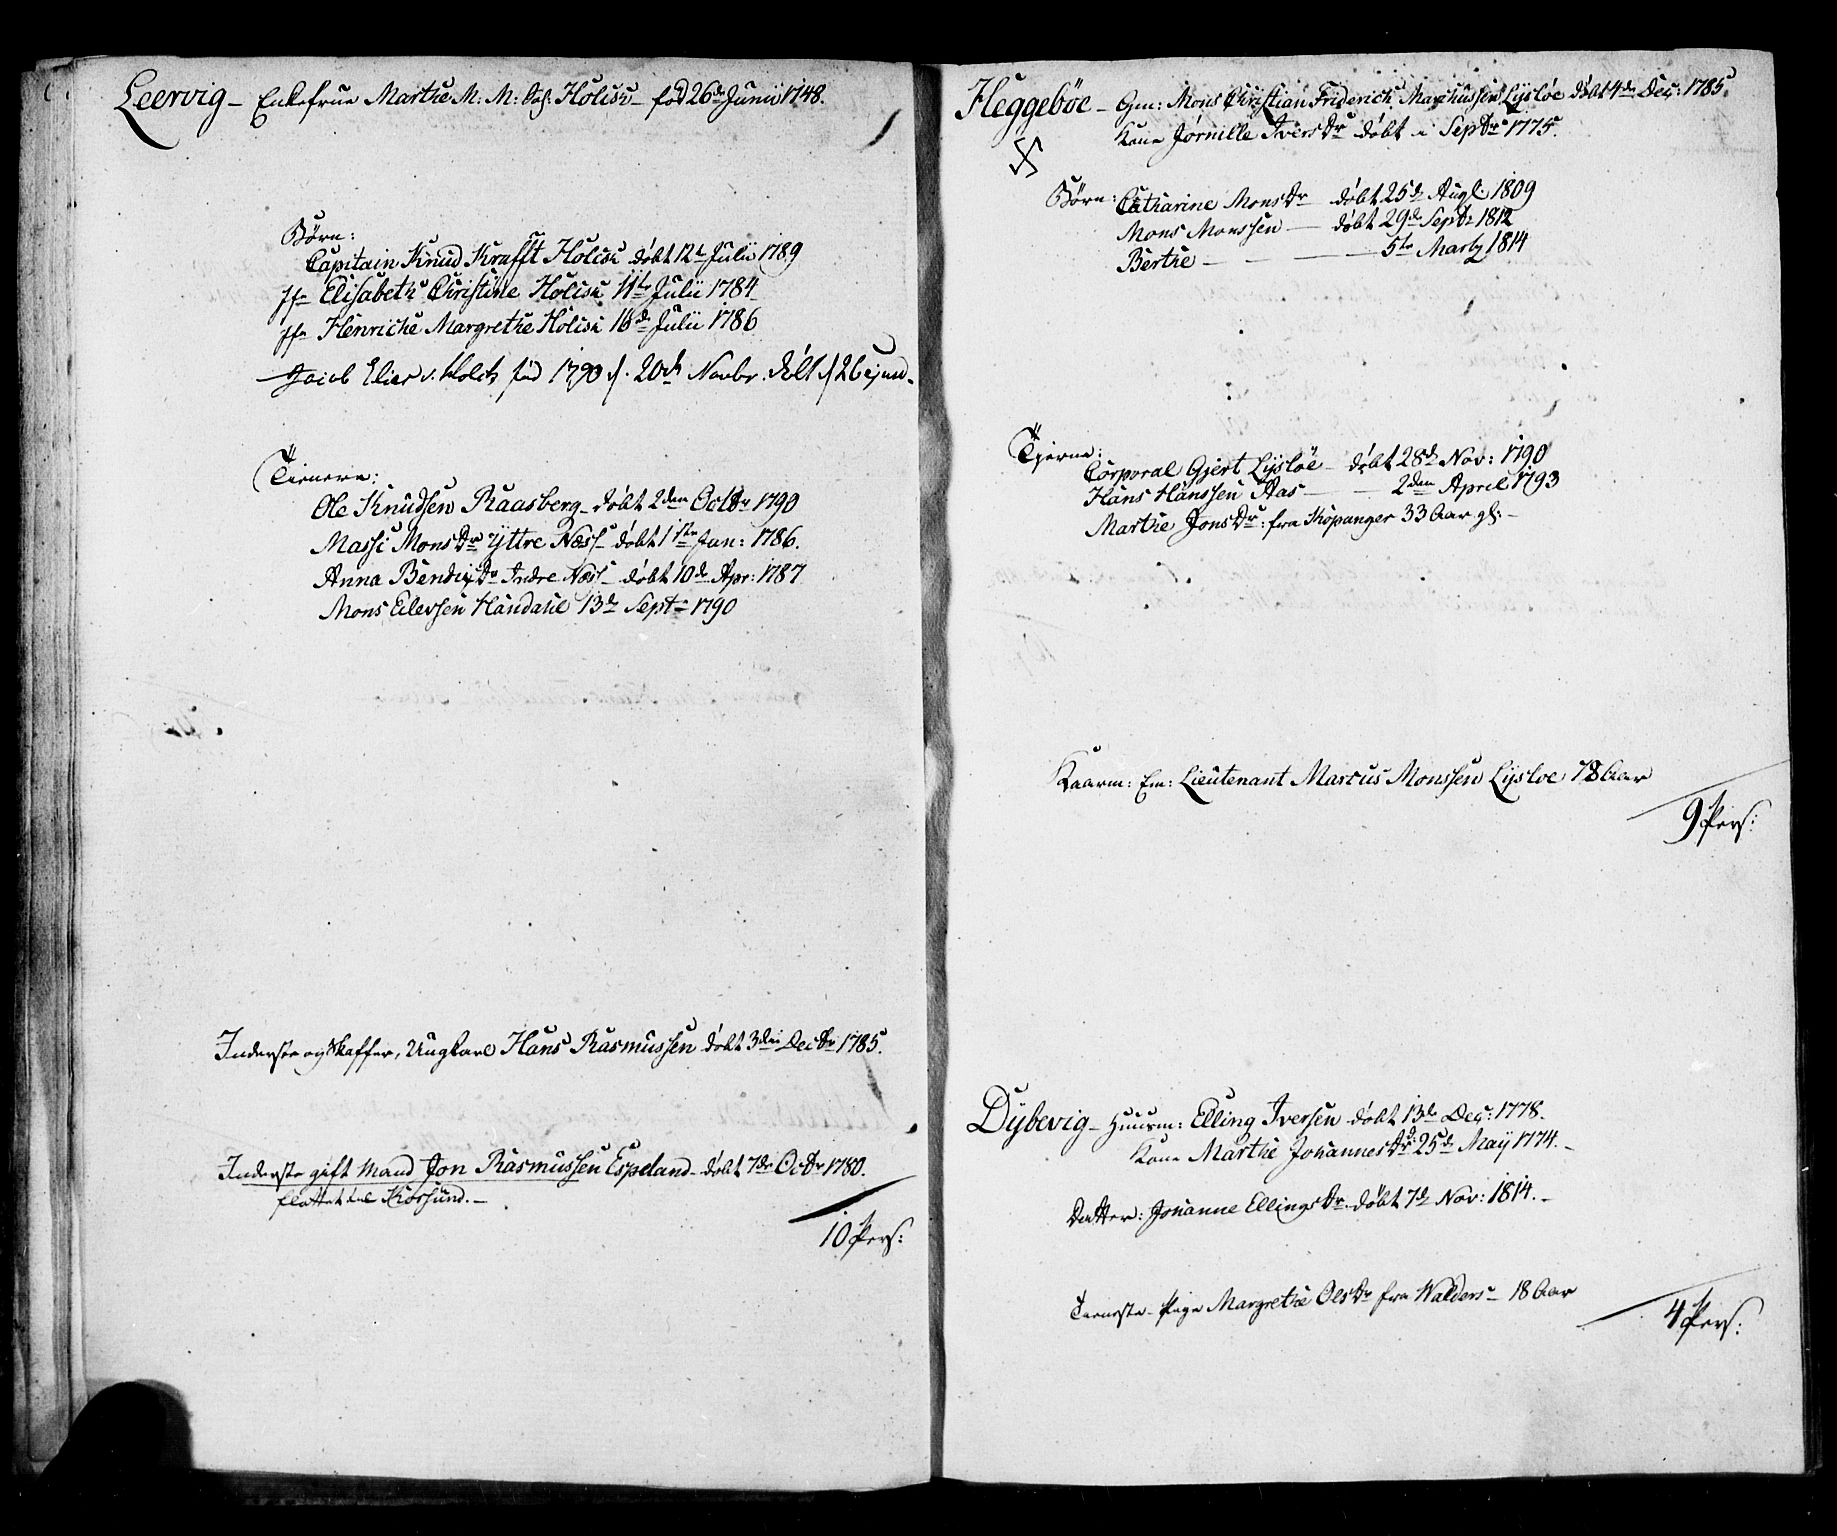 Leervig – Enkefrue Marthe M. M: Holch – fød 26de Junii 1748.
Börn:
Capitain Knud Krafft Holch döbt 12te Julii 1789
Jfr Elisabeth Christine Holch 11te Julii 1784
Jfr Henriche Margrethe Holch 16de Julii 1786
Jacob Elier v. Holch fød 1790 d. 20de Novbr. döbt d 26 ejusd.
Tienere:
Ole Knudsen Raasberg – döbt 2den Octbr 1790
Massi Monsdr Yttre Næss – döbt 1ste Jan: 1786.
Anna Bendixdr Indre Næss – döbt 10de Apr: 1787
Mons Eilersen Handahl 13de Septr 1790
Inderste og Skaffer, Ungkarl Hans Rasmussen döbt 3die Decbr 1785.
Inderste gift Mand Jon Rasmussen Espeland – döbt 7de Octbr 1780.
flöttet til Korssund. –
10 Pers:
Heggebøe – Gm: Mons Christian Friderich Marchussen Lysløe döbt 4de Dec: 1785
Kone Jørnille Iversdr döbt i Septbr 1775.
Börn: Catharine Monsdr – döbt 25de Aug: 1809
Mons Monssen – döbt 29de Septr 1812
Berthe – – – 5te Marty 1814
Tjenere:
Corporal Gjert Lysløe – döbt 28de Nov: 1790
Hans Hanssen Aas – – 2den April 1793
Marthe Jonsdr: fra Kopanger 33 Aar gl: –
Kaarm: Em: Lieutenant Marcus Monssen Lysloe 78 Aar
9 Pers:
Dybevig – Huusm: Elling Iversen döbt 13de Dec: 1778.
Kone Marthe Johannesdr d: 25de May 1774. –
Datter: Johanne Ellingsdr – döbt 7de Nov: 1814. –
Tieneste-Pige Margrethe Olsdr fra Walders – 18 Aar
4 Pers: